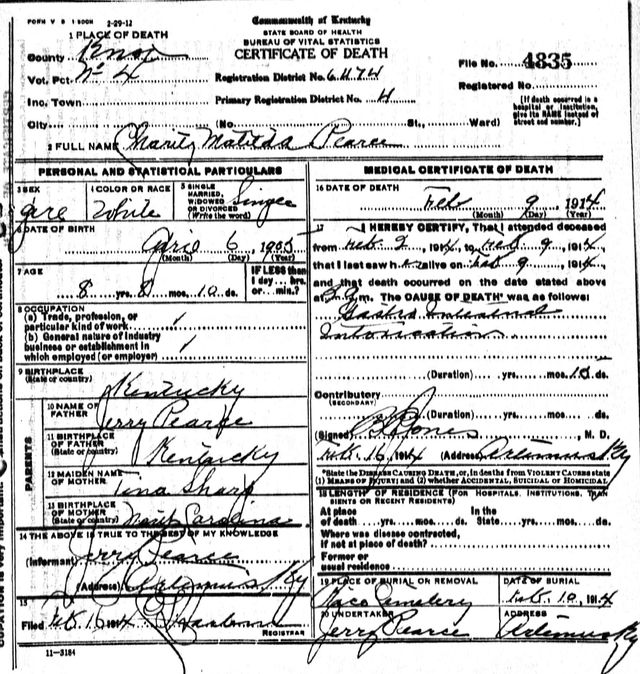 FORM V S 1 500M 2-29-12
Commonwealth of Kentucky
STATE BOARD OF HEALTH
BUREAU OF VITAL STATISTICS
CERTIFICATE OF DEATH
1 PLACE OF DEATH
County Knox
File No. 4835
Vot. Pct. No 4
Registration District No. 6474
Registered No.
Inc. Town
Primary Registration District No. 4
[If death occurred in a hospital or institution, give its NAME instead of street and number.]
City (No St., Ward)
2 FULL NAME Charity Matilda Pearce
PERSONAL AND STATISTICAL PARTICULARS
3 SEX
4 COLOR OR RACE White
5 SINGLE MARRIED, WIDOWED OR DIVORCED (Write the word) Single
6 DATE OF BIRTH
6
(Month) (Day) (Year)
7 AGE
8 yrs. 8 mos. 10 ds.
IF LESS than 1 day... hrs. or... min.?
8 OCCUPATION
(a) Trade, profession, or particular kind of work
(b) General nature of industry business or establishment in which employed (or employer)
9 BIRTHPLACE
(State or country) Kentucky
PARENTS
10 NAME OF FATHER Jerry Pearce
11 BIRTHPLACE OF FATHER (State or country) Kentucky
12 MAIDEN NAME OF MOTHER Tina Sharp
13 BIRTHPLACE OF MOTHER (State or country) North Carolina
14 THE ABOVE IS TRUE TO THE BEST OF MY KNOWLEDGE
(Informant) Jerry Pearce
(Address) Artemus Ky
15
Filed Feb. 10 1914
REGISTRAR
11-3184
MEDICAL CERTIFICATE OF DEATH
16 DATE OF DEATH
Feb 9, 1914
(Month) (Day) (Year)
17 I HEREBY CERTIFY, That I attended deceased
from Feb 2, 1914, to Feb 9, 1914
that I last saw h alive on Feb 9, 1914
and that death occurred on the date stated above
at m. The CAUSE OF DEATH* was as follows:
Gastro Intestinal
Intoxication
(Duration) yrs. mos. 10 ds.
Contributory
(SECONDARY)
(Duration) yrs. mos. ds.
(Signed) Jones, M. D.
Feb. 10, 1914 (Address) Artemus Ky
*State the DISEASE CAUSING DEATH, or, in deaths from VIOLENT CAUSES state
(1) MEANS OF INJURY; and (2) whether ACCIDENTAL, SUICIDAL or HOMICIDAL
18 LENGTH OF RESIDENCE (FOR HOSPITALS, INSTITUTIONS, TRANSIENTS OR RECENT RESIDENTS)
At place of death yrs. mos. ds. In the State yrs. mos. ds.
Where was disease contracted,
if not at place of death?
Former or
usual residence
19 PLACE OF BURIAL OR REMOVAL
Cemetery
DATE OF BURIAL
Feb. 10, 1914
20 UNDERTAKER
Jerry Pearce
ADDRESS
Artemus Ky